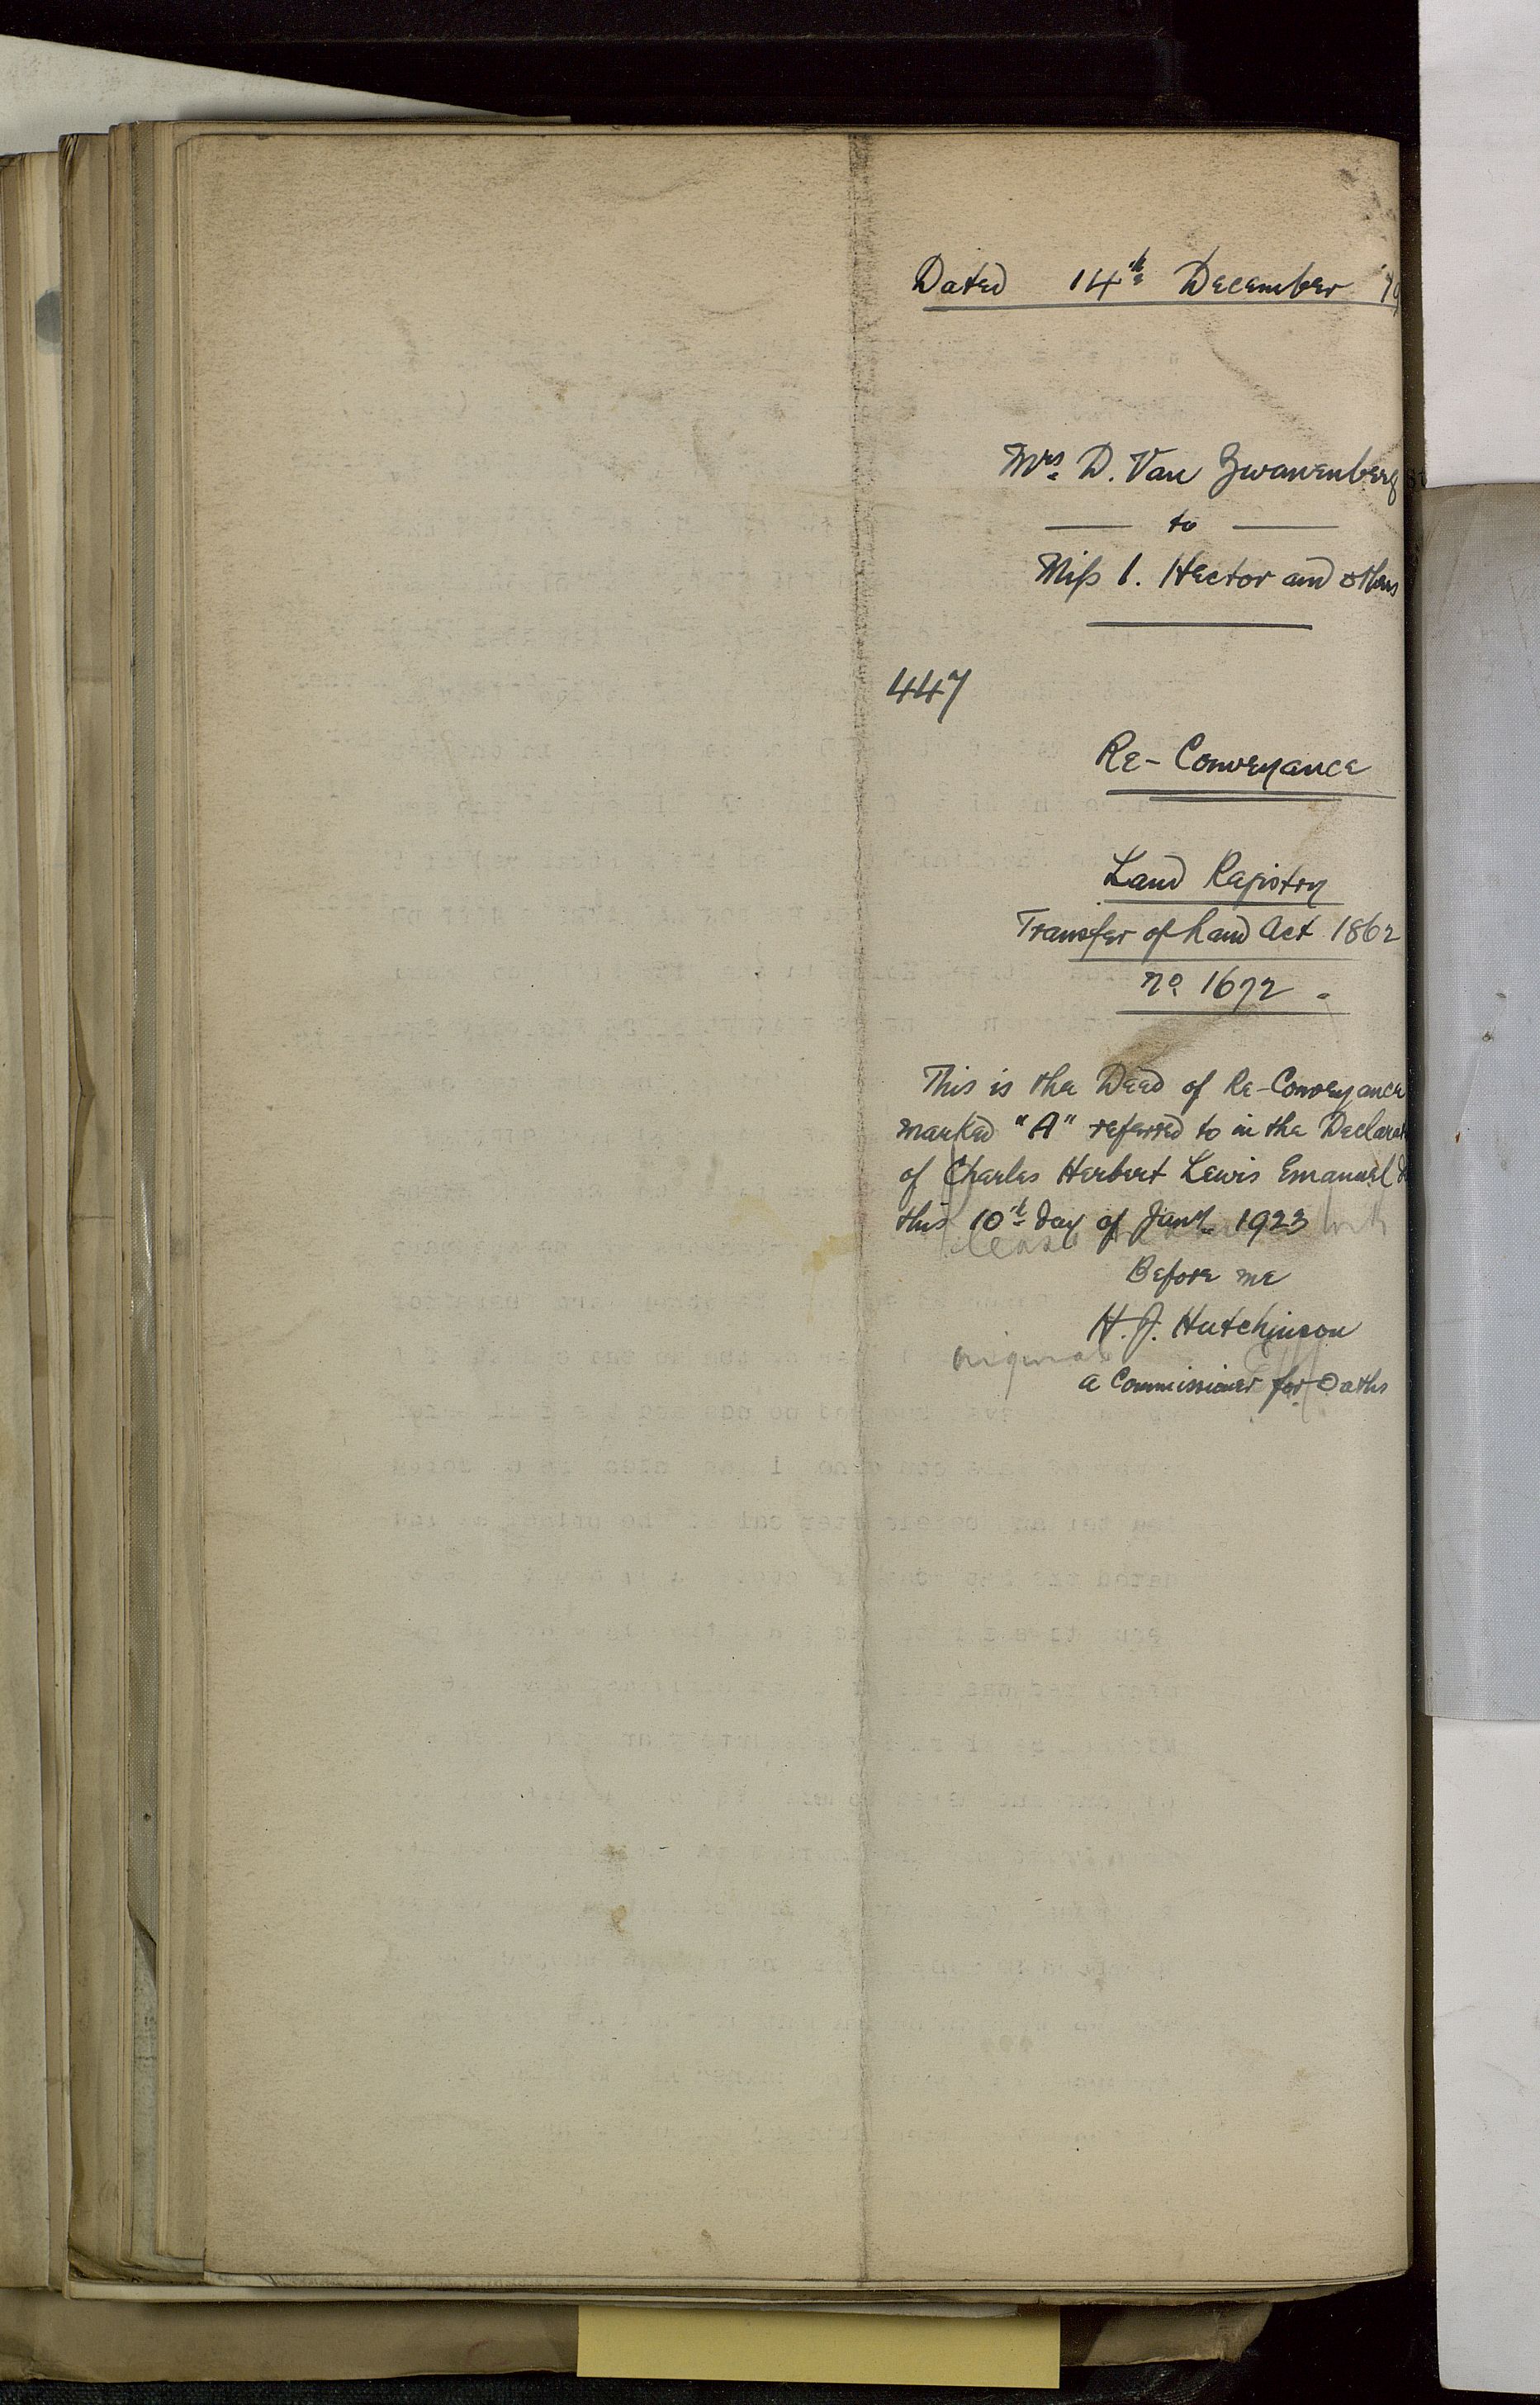 Dated 14th December 19
Mrs D. Van Zwanenberg
to
Miss I. Hector and others
447
Re-Conveyance
Land Registry
Transfer of Land Act 1862
No 1672
This is the Deed of Re-Conveyance
marked "A" referred to in the Declarat
of Charles Herbert Lewis Emanuel
this 10th day of Jany 1923
Please
Before me
H. J. Hutchinson
original
a Commissioner for Oaths